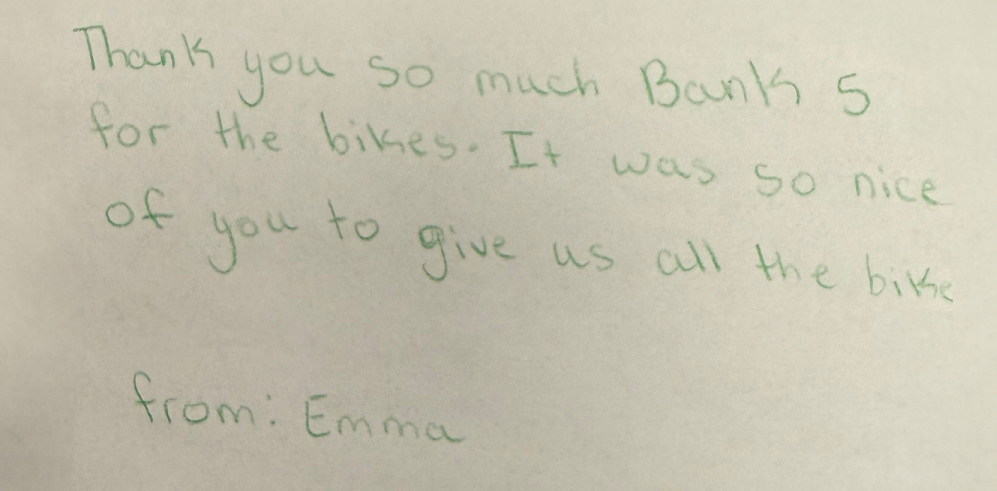 Thank you so much Bank 5
for the bikes. It was so nice
of you to give us all the bike
from: Emma